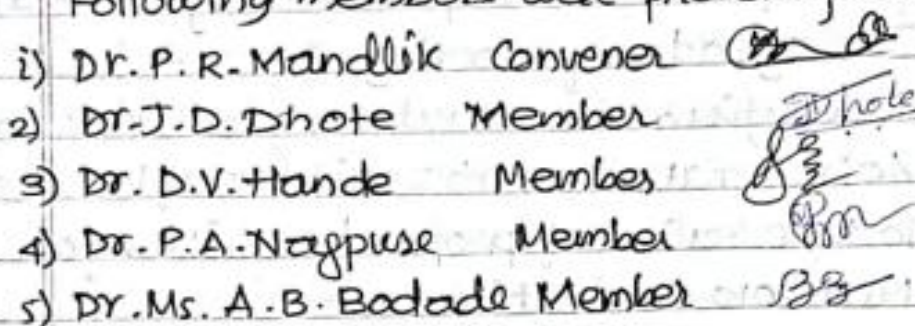 Following members
i) Dr. P. R. Mandlik Convener
2) Dr. J. D. Dhote Member Dhote
3) Dr. D.V. Hande Member
4) Dr. P. A. Nagpuse Member
5) Dr. Ms. A. B. Bodade Member